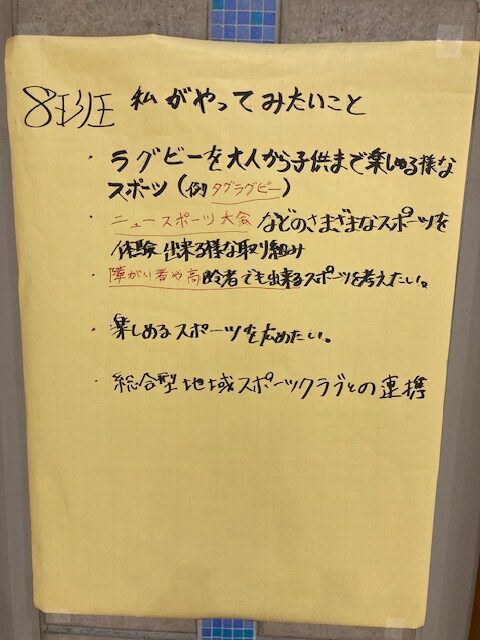 8班 私がやってみたいこと
・ラグビーを大人から子供まで楽しめる様な
スポーツ(例 タグラグビー)
・ニュースポーツ大会などのさまざまなスポーツを
体験出来る様な取り組み
・障がい者や高齢者でも出来るスポーツを考えたい。
・楽しめるスポーツを広めたい。
・総合型地域スポーツクラブとの連携